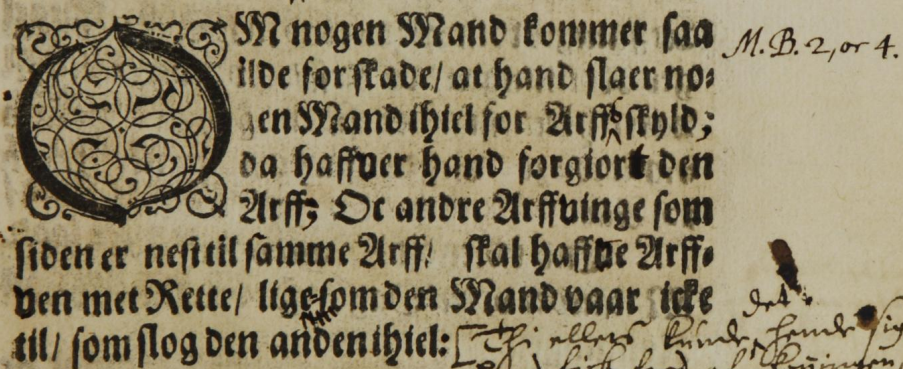 OM nogen Mand kommer saa
ilde for skade/ at hand slaer no⸗
gen Mand ihiel for Arffs skyld;
da haffver hand forgiort den
Arff; Oc andre Arffvinge som
siden er nest til samme Arff/ skal haffve Arff⸗
ven met Rette/ lige-som den Mand vaar icke
til/ som slog den anden ihiel: [Thi ellers kunde det hende sig
M.B. 2, or 4.